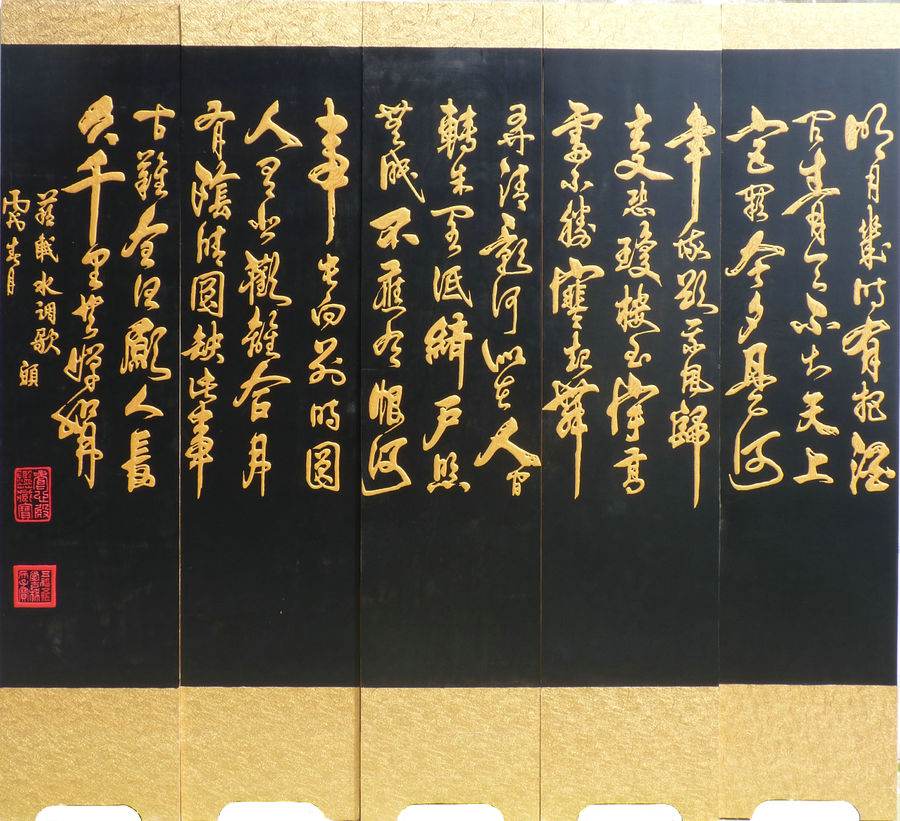 明月幾时有把酒
问青天不知天上
宫闕今夕是何
年我欲乘风歸
去又恐瓊楼玉宇高
處不勝寒起舞
弄清影何似在人间
轉朱阁低綺户照
無眠不應有恨何
事长向别时圆
人有悲歡離合月
有陰晴圆缺此事
古難全但願人長
久千里共嬋娟
蘇軾水调歌頭
丙戌春月